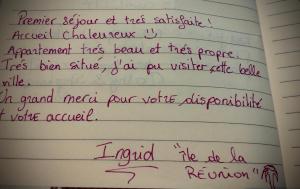 Premier séjour et très satisfaite !
Accueil Chaleureux ☺
Appartement très beau et très propre.
Très bien situé, j'ai pu visiter cette belle
ville.
Un grand merci pour votre disponibilité
et votre accueil.
Ingrid "île de la
RÉUNION"